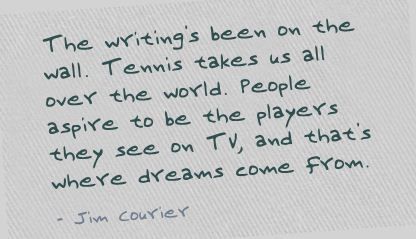 The writing's been on the
wall. Tennis takes us all
over the world. People
aspire to be the players
they see on TV, and that's
where dreams come from.
- Jim Courier